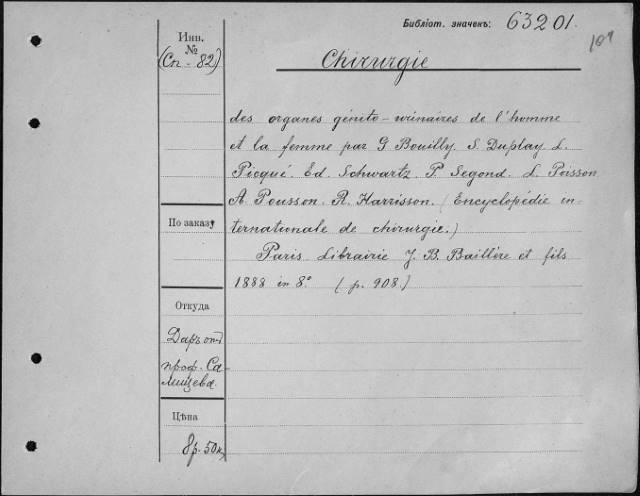 Библіот. значекъ: 63201.
109
Инв.
№
(Сп - 82)
Chirurgie
des organes génito-urinaires de l'homme
et la femme par G Bouilly. S. Duplay L.
Picqué. Ed. Schwartz. P. Segond. L. Poisson
A. Pousson. R. Harrisson. (Encyclopédie in-
ternationale de chirurgie.)
Paris Librairie J. B. Baillère et fils
1888 in 8° (p. 908.)
По заказу
Откуда
Даръ отъ
проф. Са-
лищева.
Цѣна
8р. 50к